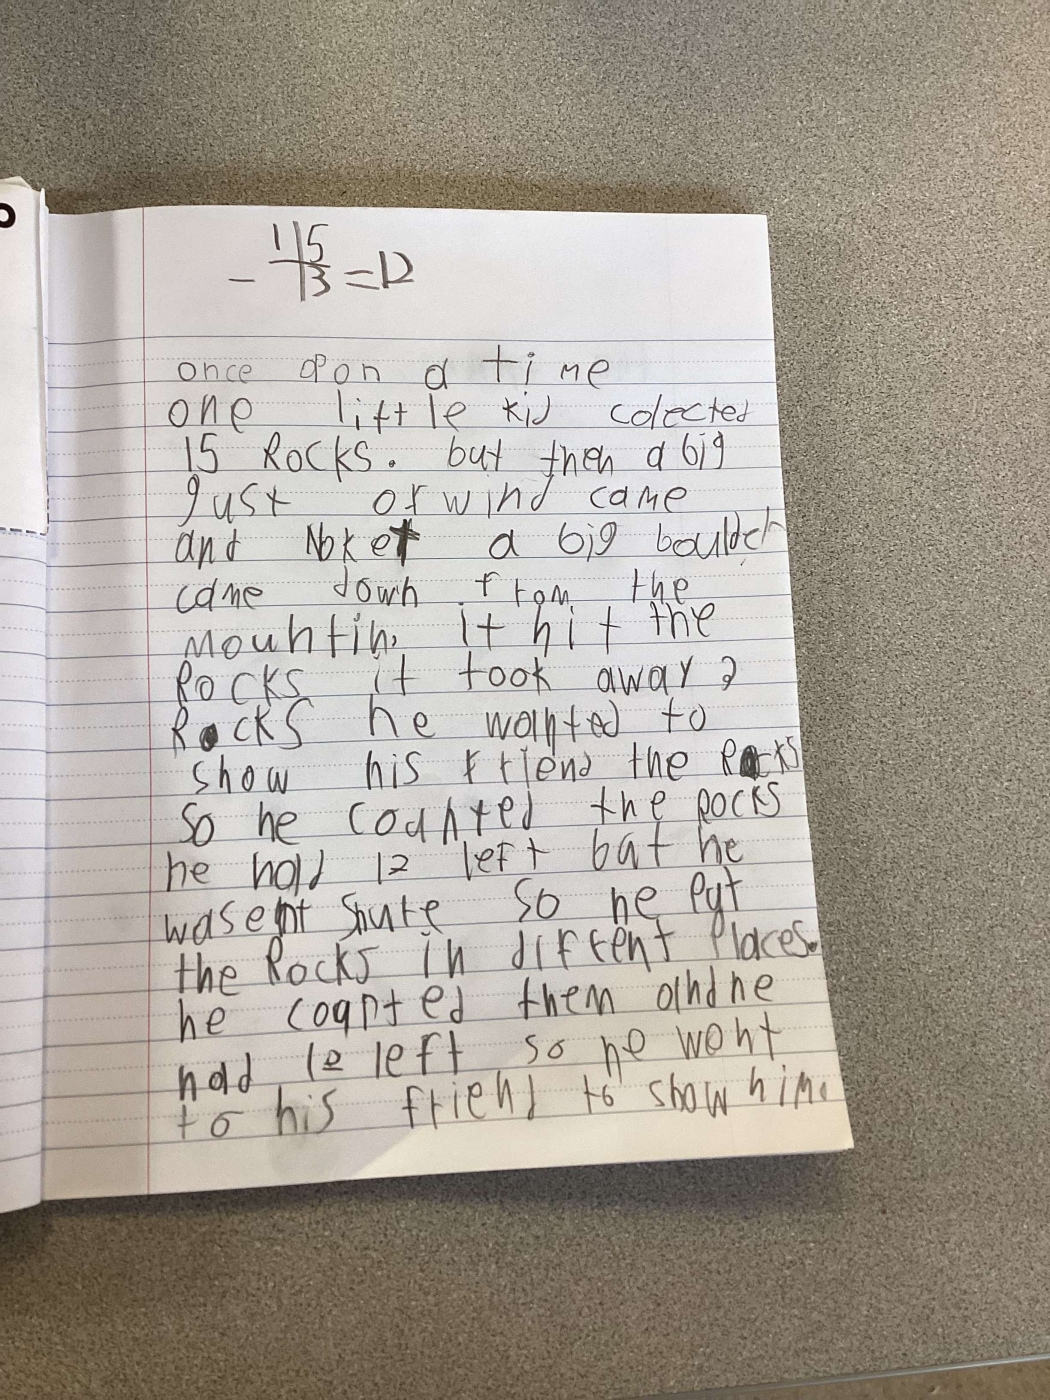 - 15
3 = 12
once opon a time
one little kid colected
15 Rocks. but then a big
gust of wind came
and Noket a big boulder
came down from the
mountin. it hit the
Rocks it took away 2
Rocks he wanted to
show his friend the Rocks
So he counted the Rocks
he had 12 left but he
wasent shure so he put
the Rocks in diffrent places.
he counted them and he
had 12 left so he went
to his friend to show him.